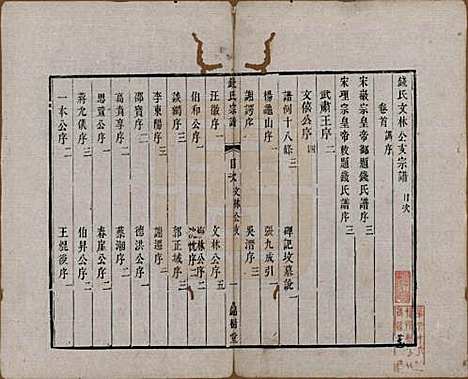 錢氏文林公支宗譜 目次
卷首 調序
宋徽宗皇帝御題錢氏譜序 三
宋理宗皇帝敕題錢氏譜序 三
武肅王序 二
文僖公序 四
譜詞十八條 碑記墳墓說
楊龜山序 二 張九成引 一
謝諤序 三 吳潛序 三
錢氏宗譜 目次 文林公支 一 錦樹堂
汪徽序 二 文林公序 五
伯和公序 二
談鑰序 二 郭正域序 三
李東陽序 三 謝遷序 二
邵寶序 三 德洪公序 二
高賁亨序 二 蔡潮序 二
思置公序 一 春崖公序 二
蔣允儀序 三 伯昇公序 二
一本公序 二 王錕後序